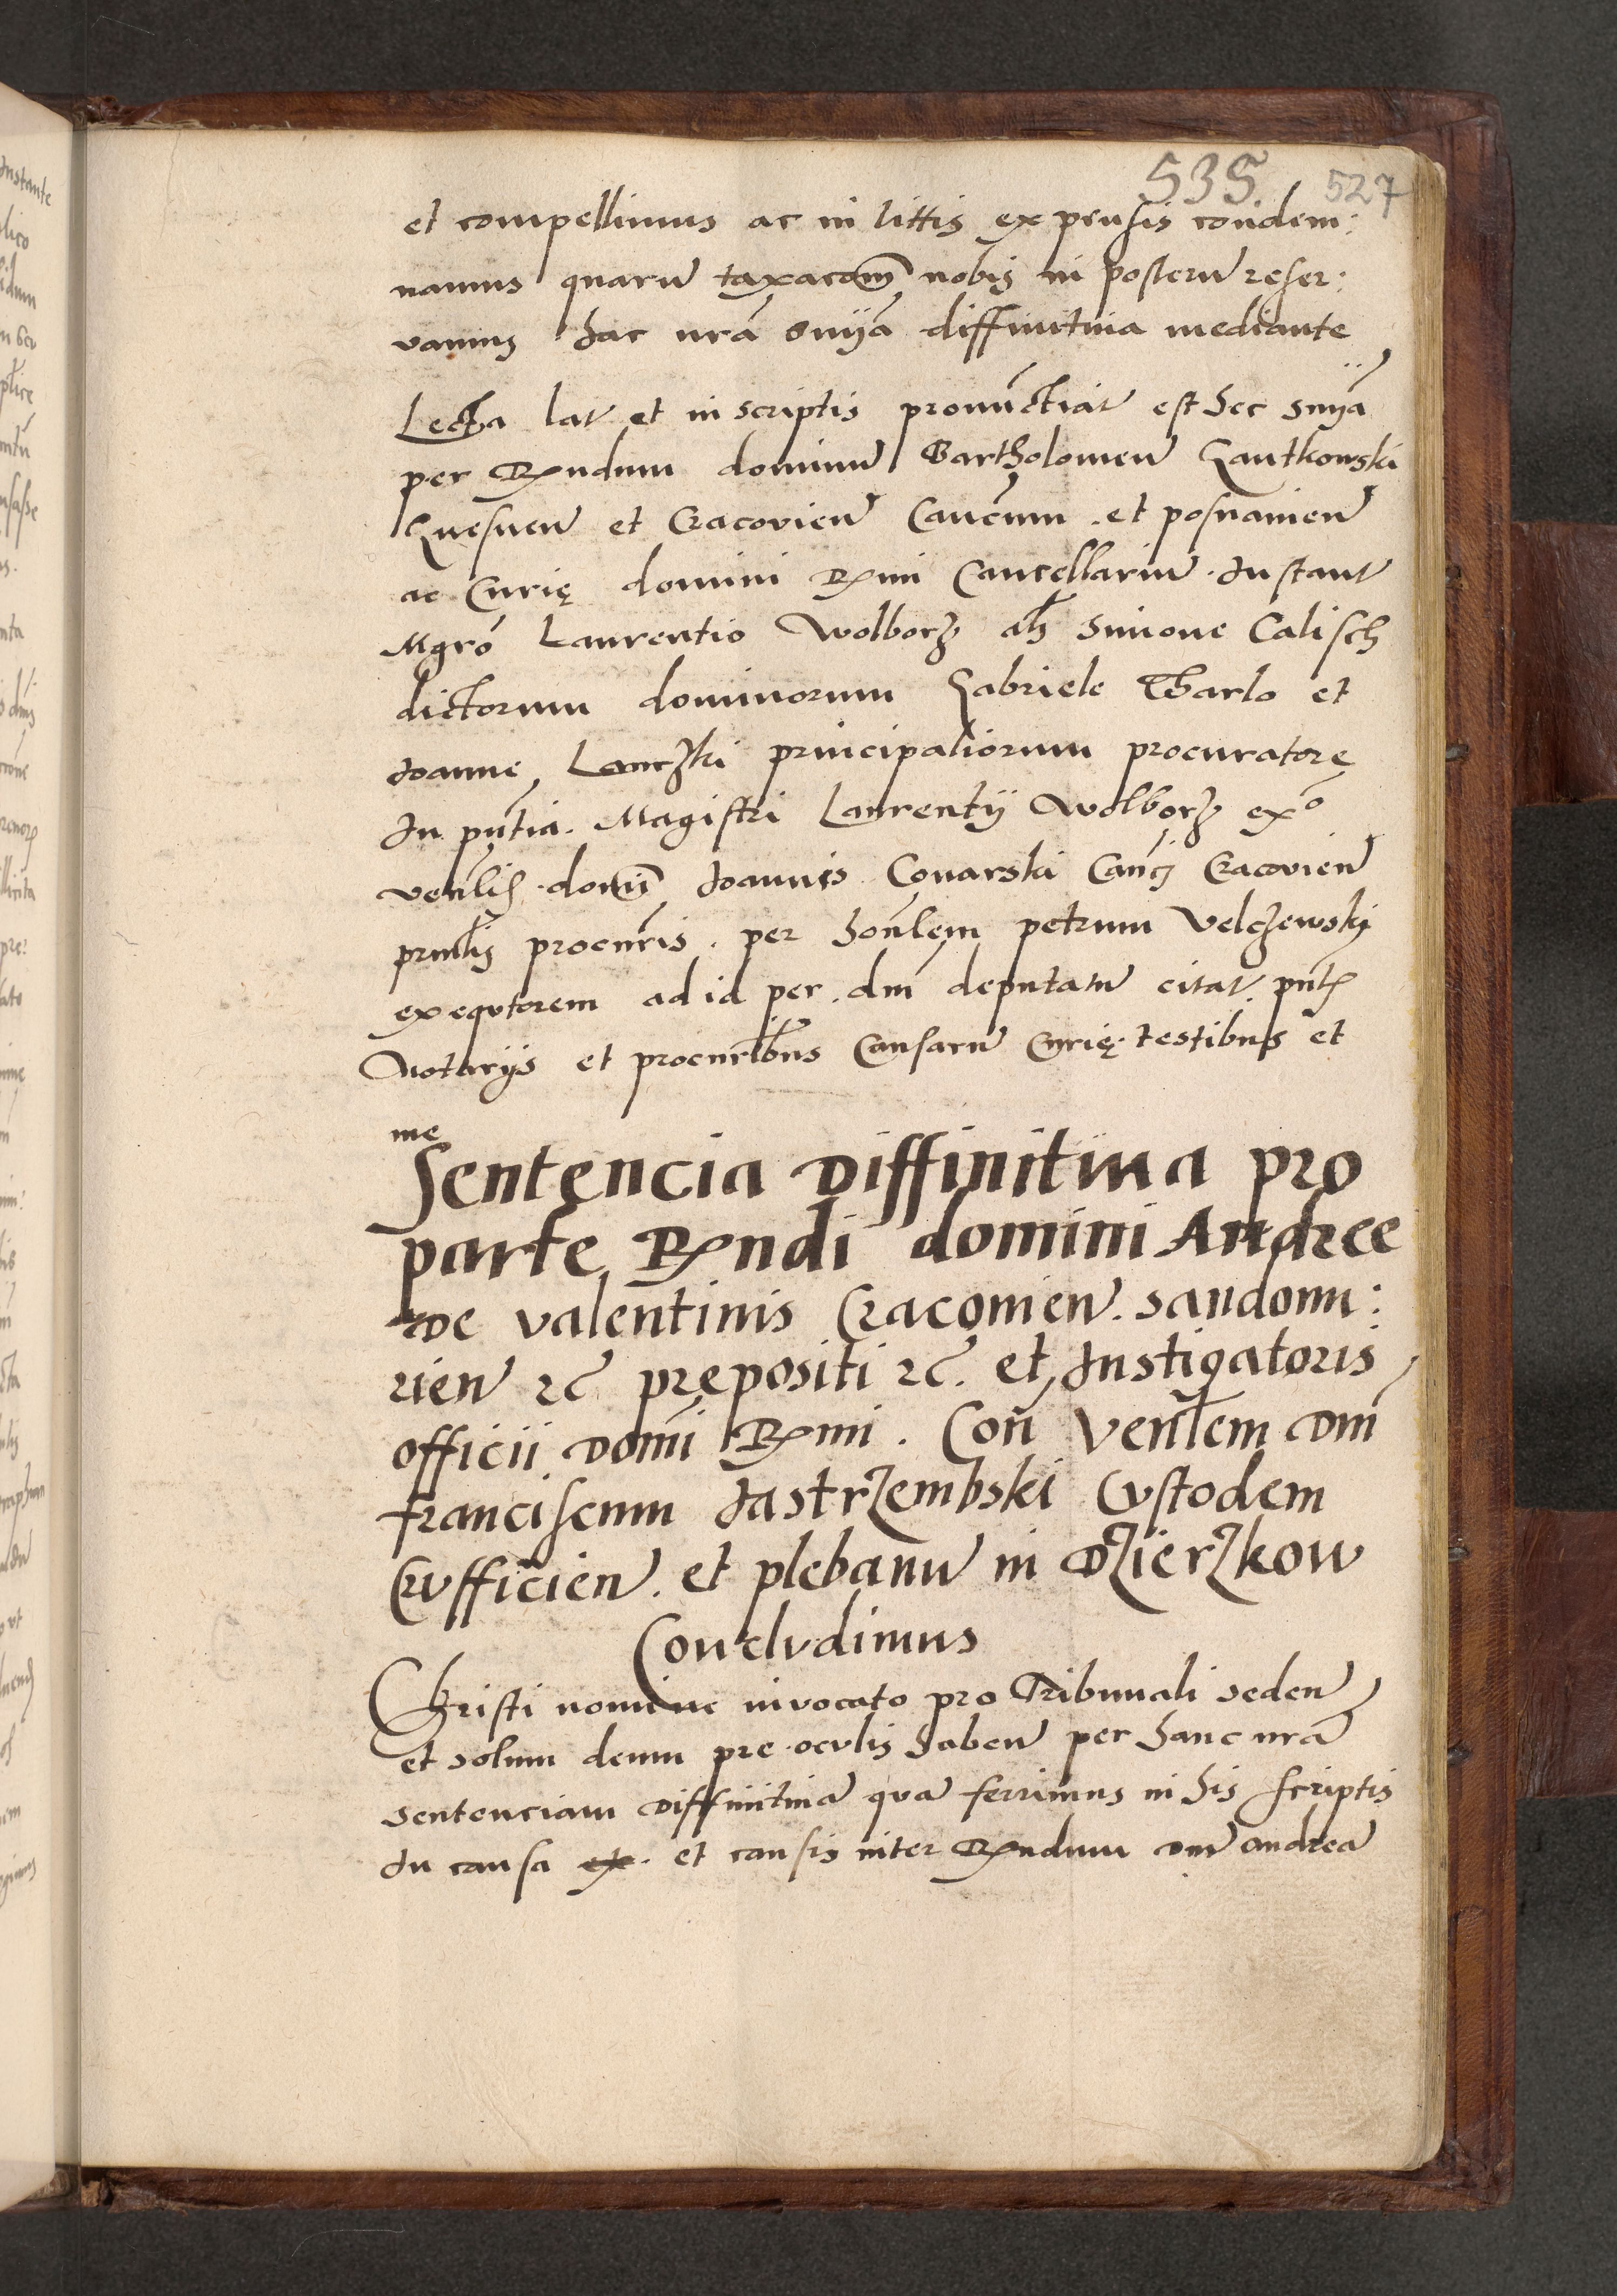 535. 527
et compellimus ac in littis expensis condem:
namus quarũ taxacom̃ nobis in posterũ reser:
vamus hac nrã snÿã diffinitiva mediante
Lecta lat et in scriptis pronũctiat est hec snÿã
per Rndum dominũ Bartholomeũ Gantkowski
Gnesneñ et Cracovieñ Canc̃um et posnanieñ
ac Curię domini Rmi Cancellariũ Instant
Mgrõ Laurentio Wolborz als Simone Calisch
dictorum dominorum Gabriele Tharlo et
Joanne Lanczki principaliorum procuratore
In pn̄tia Magistri Laurentÿ Wolborz exº
ven̄lis dom̃ Joannis Conarski Can̄ci Cracovieñ
prin̄lis procur̃is per hon̄lem petrum Velczewski
exequtorem ad id per dm̃ deputatũ citat pn̄t
Notarÿs et procur̃ibus Causarũ Curię testibus et
me
Sentencia Diffinitiua pro
parte Rndi domini Andree
De valentinis Cracouieñ. Sandomi:
rieñ rc̃ prępositi rc̃. et Instigatoris
officii domĩ Rmi. Con̄ Ven̄lem Dm̃
franciscum Jastrzembski Custodem
Crufficieñ. et plebanũ in Dzierzkow
Concludimus
Christi nomine invocato pro Tribunali sedeñ
et solum deum pre oculis habeñ per hanc nrã
sentenciam Diffinitiuã quã ferrimus in his scriptis
In causa et causis inter Rndum Dm̃ Andreã